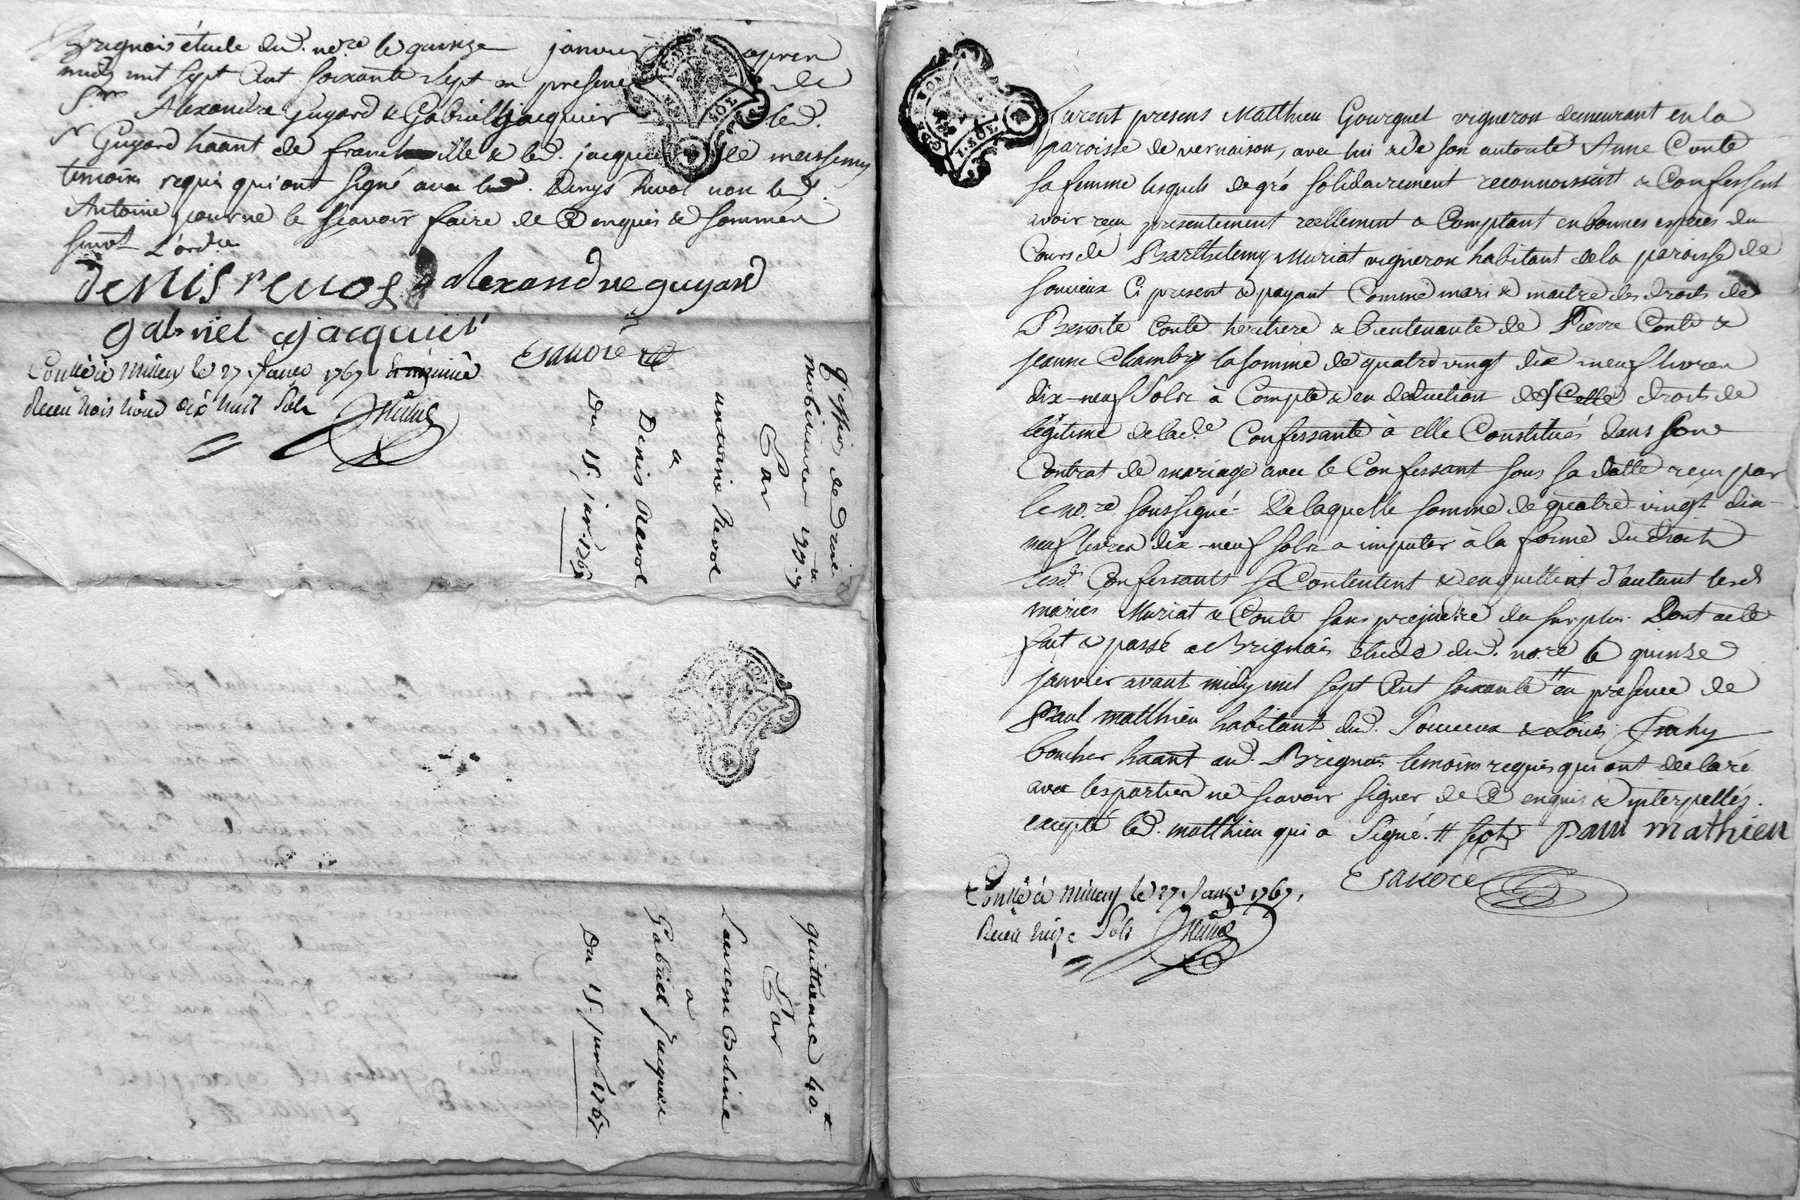 Brignais étude dud. nore. le quinze janvier apres
midy mil sept cent soixante sept en presence de
Sr. Alexandre Guyard & Gabriel Jacquier led.
Sr Guyard haānt de francheville & led. jacquier de messimy
temoins requis qui ont signé avec led. Denys Revol non led.
Antoine pour ne le scavoir faire de ce enquis & sommé
suivt. L'ordce
denis revol alexandre guyard
gabriel jacquier
Esauore
Contlé à Millery le 27 Janvr 1767
Receu trois livres dix huit Sols
Cession de droits
mobiliaires 199.#
Par
antoine Revol
a
Denis Revol
Du 15, janr. 1767
quittance 40.#
Par
Laurent
a
Gabriel Jacquier
Du 15. janr. 1767.
Furent presens Matthieu Gourguet vigneron demeurant en la
paroisse de vernaison, avec lui & de son autorité Anne Conte
sa femme lesquels de gré solidairement reconnoissent & Confessent
avoir recu presentement reellement & Comptant en bonnes especes du
Cours de Barthelemy Muriat vigneron habitant de la paroisse de
Soucieux Ci present & payant Comme mari & maitre des droits de
Benoite Conte heritiere & bientenante de Pierre Conte &
jeanne Chambry la somme de quatre vingt dix neuf livres
dix-neuf Sols à Compte & en deduction des droits de
légitime de lade. Confessante à elle Constitués dans son
Contrat de mariage avec le Confessant sous sa datte recu par
le nore. soussigné. De laquelle somme de quatre vingt dix-
neuf livres dix-neuf sols a imputer à la forme du droit
lesd. Confessants se Contentent & en quittent d'autant lesd
mariés Muriat & Conte sans prejudice du surplus. Dont acte
fait & passé a Brignais étude dud. nore. le quinze
janvier avant midy mil sept cent soixante # en presence de
Paul Matthieu habitant dud. Soucieux & Louis
boucher haānt aud. Brignais temoins requis qui ont declaré
avec les parties ne scavoir signer de ce enquis & interpellés.
excepté led. matthieu qui a signé. # sept paul mathieu
Esauore
Contlé à Millery le 27 Janvr 1767,
Receu treize Sols